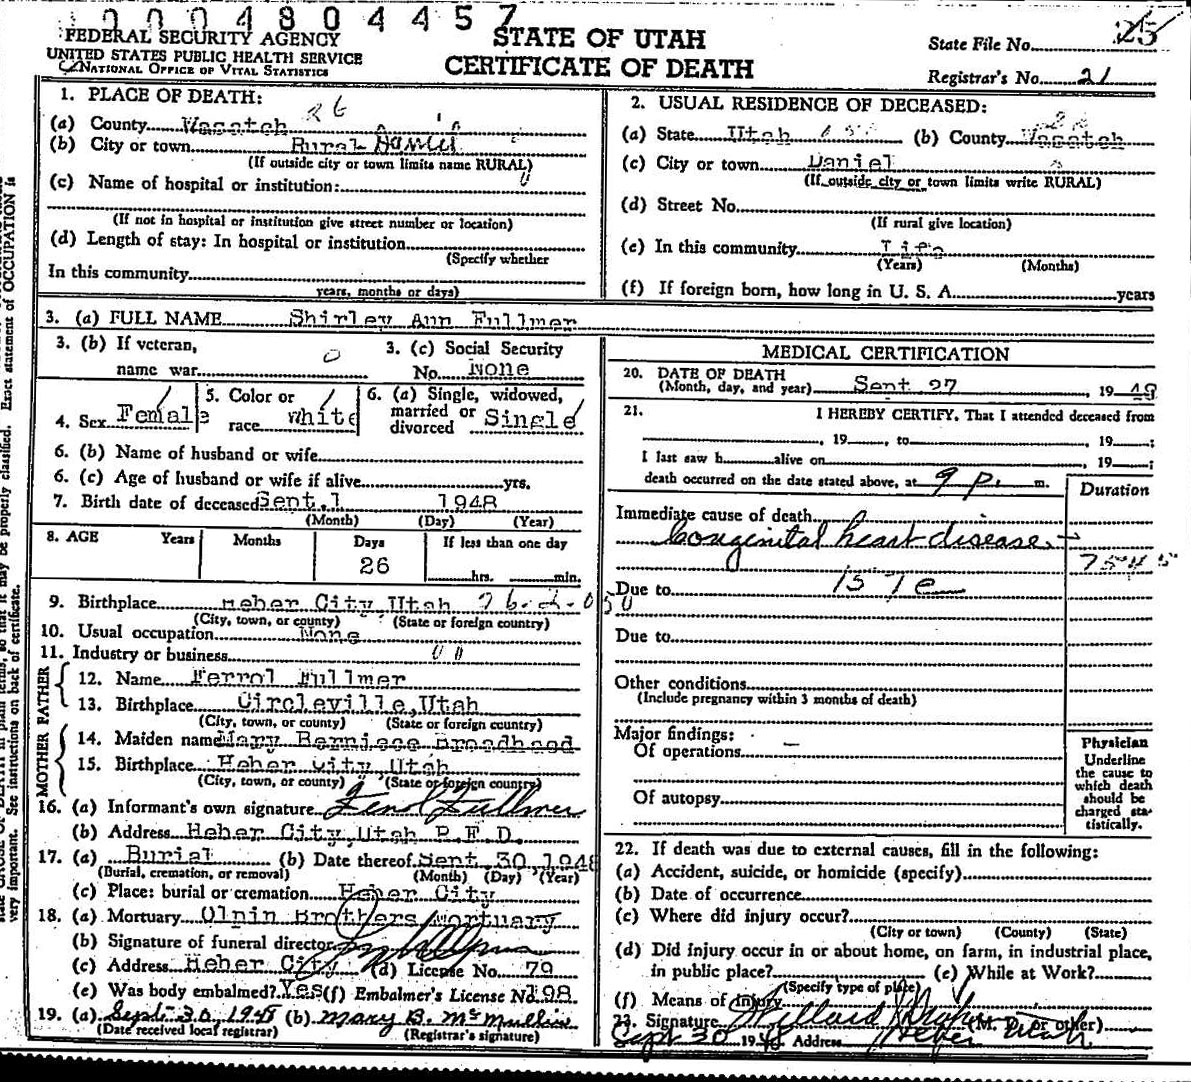 0004804457
FEDERAL SECURITY AGENCY
UNITED STATES PUBLIC HEALTH SERVICE
NATIONAL OFFICE OF VITAL STATISTICS
STATE OF UTAH
CERTIFICATE OF DEATH
State File No. 25
Registrar's No. 21
1. PLACE OF DEATH:
(a) County Wasatch
(b) City or town Rural Daniel
(If outside city or town limits name RURAL)
(c) Name of hospital or institution:
(If not in hospital or institution give street number or location)
(d) Length of stay: In hospital or institution
(Specify whether
In this community
years, months or days)
2. USUAL RESIDENCE OF DECEASED:
(a) State Utah (b) County Wasatch
(c) City or town Daniel
(If outside city or town limits write RURAL)
(d) Street No.
(If rural give location)
(e) In this community Life
(Years) (Months)
(f) If foreign born, how long in U. S. A. years
3. (a) FULL NAME Shirley Ann Fullmer
3. (b) If veteran,
name war 0
3. (c) Social Security
No. None
4. Sex Female
5. Color or
race White
6. (a) Single, widowed,
married or
divorced Single
6. (b) Name of husband or wife
6. (c) Age of husband or wife if alive yrs.
7. Birth date of deceased Sept. 1 1948
(Month) (Day) (Year)
8. AGE Years Months Days If less than one day
26 hrs. min.
9. Birthplace Heber City, Utah
(City, town, or county) (State or foreign country)
10. Usual occupation None
11. Industry or business
FATHER
12. Name Ferrol Fullmer
13. Birthplace Circleville, Utah
(City, town, or county) (State or foreign country)
MOTHER
14. Maiden name Mary Berniece Broadhead
15. Birthplace Heber City Utah
(City, town, or county) (State or foreign country)
16. (a) Informant's own signature Fullmer
(b) Address Heber City, Utah R.F.D.
17. (a) Burial (b) Date thereof Sept 30 1948
(Burial, cremation, or removal) (Month) (Day) (Year)
(c) Place: burial or cremation Heber City
18. (a) Mortuary Olpin Brothers Mortuary
(b) Signature of funeral director
(c) Address Heber City (d) License No. 79
(e) Was body embalmed? Yes (f) Embalmer's License No. 198
19. (a) Sept. 30, 1948 (b) Mary B. McMullin
(Date received local registrar) (Registrar's signature)
MEDICAL CERTIFICATION
20. DATE OF DEATH
(Month, day, and year) Sept 27 19 48
21. I HEREBY CERTIFY, That I attended deceased from
, 19 , to , 19 ;
I last saw h alive on , 19 ;
death occurred on the date stated above, at 9 p. m.
Duration
Immediate cause of death
Congenital heart disease
7545
Due to 157e
Due to
Other conditions
(Include pregnancy within 3 months of death)
Major findings:
Of operations
Of autopsy
Physician
Underline
the cause to
which death
should be
charged sta-
tistically.
22. If death was due to external causes, fill in the following:
(a) Accident, suicide, or homicide (specify)
(b) Date of occurrence
(c) Where did injury occur?
(City or town) (County) (State)
(d) Did injury occur in or about home, on farm, in industrial place,
in public place? (e) While at Work?
(Specify type of place)
(f) Means of Injury
23. Signature (M. D. or other)
Sept 30 1948 Address Heber Utah
very important. See instructions on back of certificate.
in plain terms, so that it may be properly classified. Exact statement of OCCUPATION is